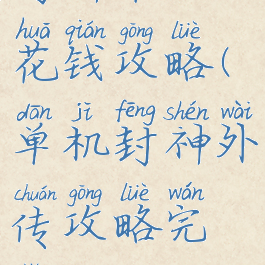 huā qián gōng lüè
花钱攻略(
dān jī fēng shén wài
单机封神外
chuán gōng lüè wán
传攻略完